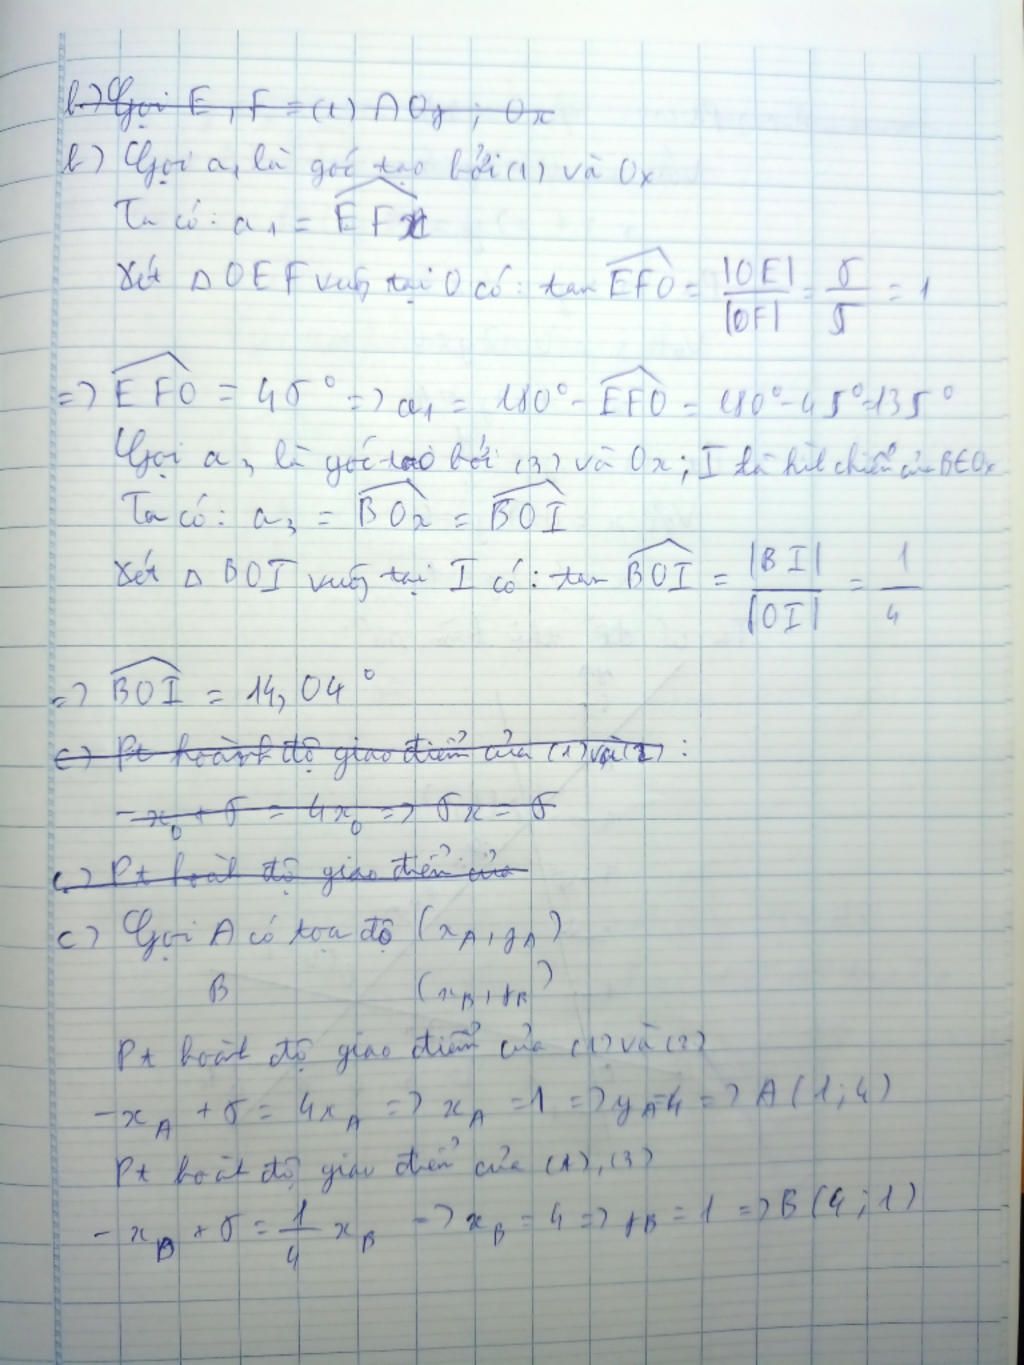 b) Gọi E, F = (1) ∩ Oy ; Ox
b) Gọi a₁ là góc tạo bởi (1) và Ox
Ta có: a₁ = EFx
Xét Δ OEF vuôg tại O có: tan EFO = |OE| / |OF| = 5/5 = 1
=> EFO = 45° => a₁ = 180° - EFO = 180° - 45° = 135°
Gọi a₃ là góc tạo bởi (3) và Ox; I là hìh chiếu của B ∈ Ox
Ta có: a₃ = BOx = BOI
Xét Δ BOI vuôg tại I có: tan BOI = |BI| / |OI| = 1/4
=> BOI = 14,04°
c) Pt hoành độ giao điểm của (1) và (2) :
-x₀ + 5 = 4x₀ => 5x = 5
c) Pt hoàh độ giao điểm của
c) Gọi A có tọa độ (x_A, y_A)
B (x_B, y_B)
Pt hoàh độ giao điểm của (1) và (2)
-x_A + 5 = 4x_A => x_A = 1 => y_A = 4 => A(1; 4)
Pt hoàh độ giao điểm của (1), (3)
-x_B + 5 = 1/4 x_B => x_B = 4 => y_B = 1 => B(4; 1)